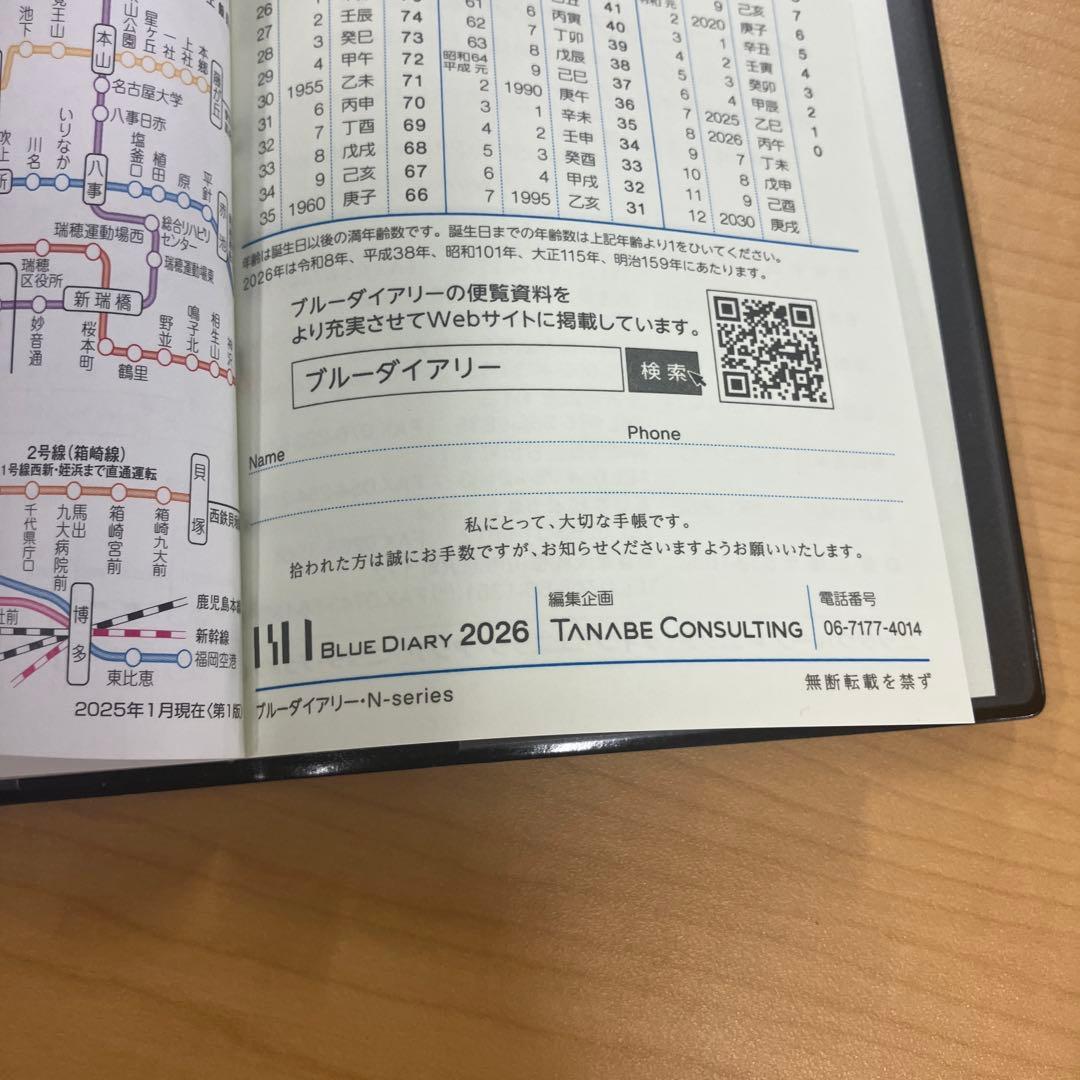 池下
覚王山
本山
星ヶ丘
一社
上社
本郷
藤が丘
名古屋大学
八事日赤
吹上
川名
いりなか
八事
塩釜口
植田
原
平針
瑞穂運動場西
総合リハビリ
センター
瑞穂運動場東
瑞穂
区役所
新瑞橋
妙音通
桜本町
鶴里
野並
鳴子北
相生山
2号線(箱崎線)
1号線西新・姪浜まで直通運転
貝塚
千代県庁口
馬出
九大病院前
箱崎宮前
箱崎九大前
博多
新幹線
福岡空港
東比恵
2025年1月現在〈第1版
26
27 2 壬辰 74
28 3 癸巳 73
29 4 甲午 72
30 1955 乙未 71
31 6 丙申 70
32 7 丁酉 69
33 8 戊戌 68
34 9 己亥 67
35 1960 庚子 66
61 41
62 6 丙寅 40
63 7 丁卯 39
昭和64
平成元
8 戊辰 38
9 己巳 37
2 1990 庚午 36
3 1 辛未 35
4 2 壬申 34
5 3 癸酉 33
6 4 甲戌 32
7 1995 乙亥 31
9 己亥 7
2 2020 庚子 6
3 1 辛丑 5
4 2 壬寅 4
5 3 癸卯 3
6 4 甲辰 2
7 2025 乙巳 1
8 2026 丙午 0
9 7 丁未
10 8 戊申
11 9 己酉
12 2030 庚戌
年齢は誕生日以後の満年齢数です。誕生日までの年齢数は上記年齢より1をひいてください。
2026年は令和8年、平成38年、昭和101年、大正115年、明治159年にあたります。
ブルーダイアリーの便覧資料を
より充実させてWebサイトに掲載しています。
ブルーダイアリー 検索
Name Phone
私にとって、大切な手帳です。
拾われた方は誠にお手数ですが、お知らせくださいますようお願いいたします。
BLUE DIARY 2026
編集企画
TANABE CONSULTING
電話番号
06-7177-4014
ブルーダイアリー・N-series
無断転載を禁ず